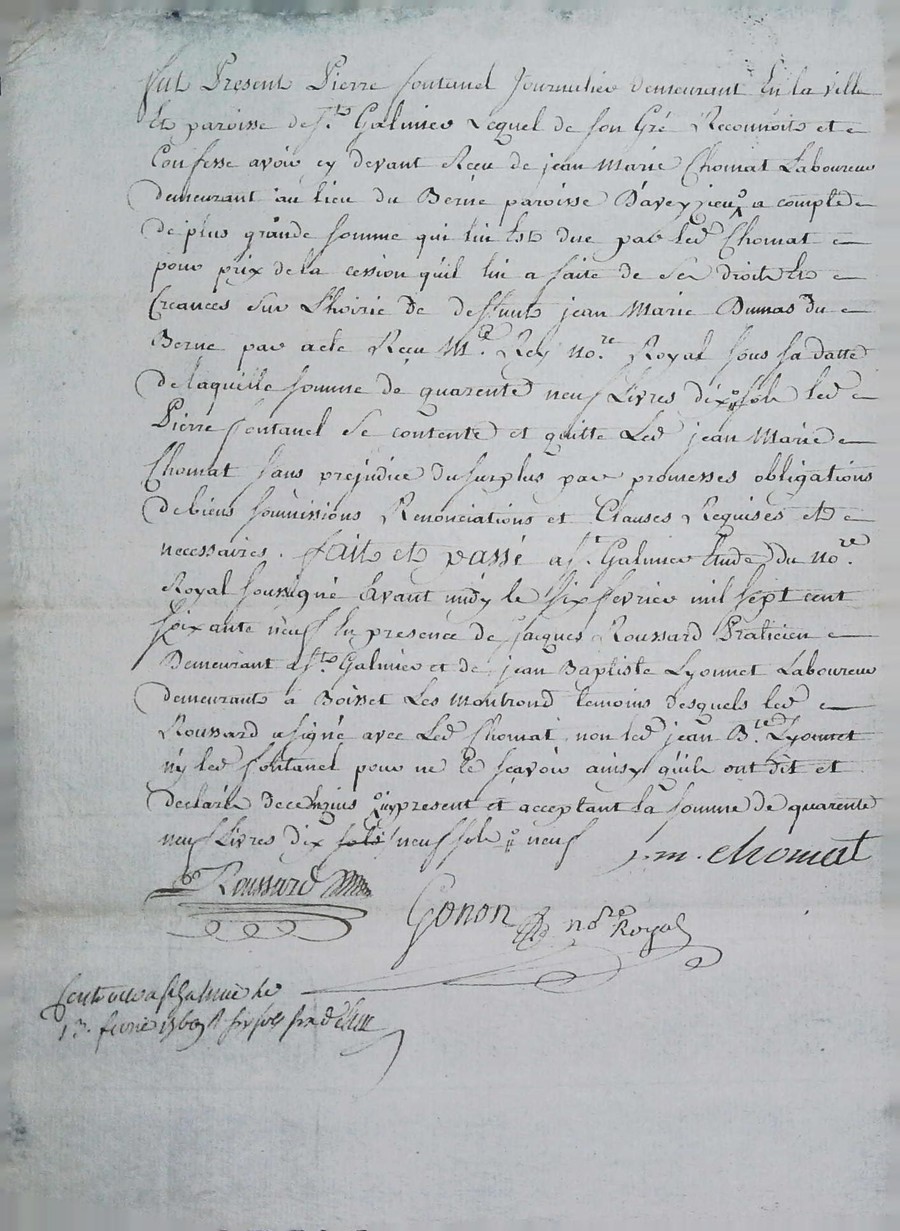 fut Present Pierre fontanel Journalier demeurant En la ville
Et paroisse de St. Galmier Lequel de son Gré Reconnoit et
Confesse avoir cy devant Receu de jean Marie Chomat Laboureur
demeurant au lieu du Berne paroisse D'aveyzieu a compte
de plus grande somme qui lui Est due par led Chomat
pour prix de la cession qu'il lui a faite de ses droits et
Creances sur L'hoirie de deffunt jean Marie Dumas du
Berne par acte Receu Me. Rey no.re Royal sous sa datte
de laquelle somme de quarente neuf Livres dix sols led
Pierre fontanel se contente et quitte Led jean Marie
Chomat sans prejudice du surplus par promesses obligations
de biens soumissions Renonciations et Clauses Requises et
necessaires. fait et passé a St. Galmier Etude du no.re
Royal soussigné avant midy le six fevrier mil sept cent
soixante neuf En presence de jaques Roussard Praticien
Demeurant a St. Galmier et de jean Baptiste Lyonnet Laboureur
demeurant a Boisset Les Montrond temoins desquels led
Roussard a signé avec Led Chomat non led jean B.te Lyonnet
ny led fontanel pour ne le sçavoir ainsy qu'ils ont dit et
declaré de ce Enquis icy present et acceptant la somme de quarente
neuf Livres dix sols neuf sols neuf
j. m. chomat
Roussard
Gonon no.re Royal
Controllé a St Galmier le
13. fevrier 1769